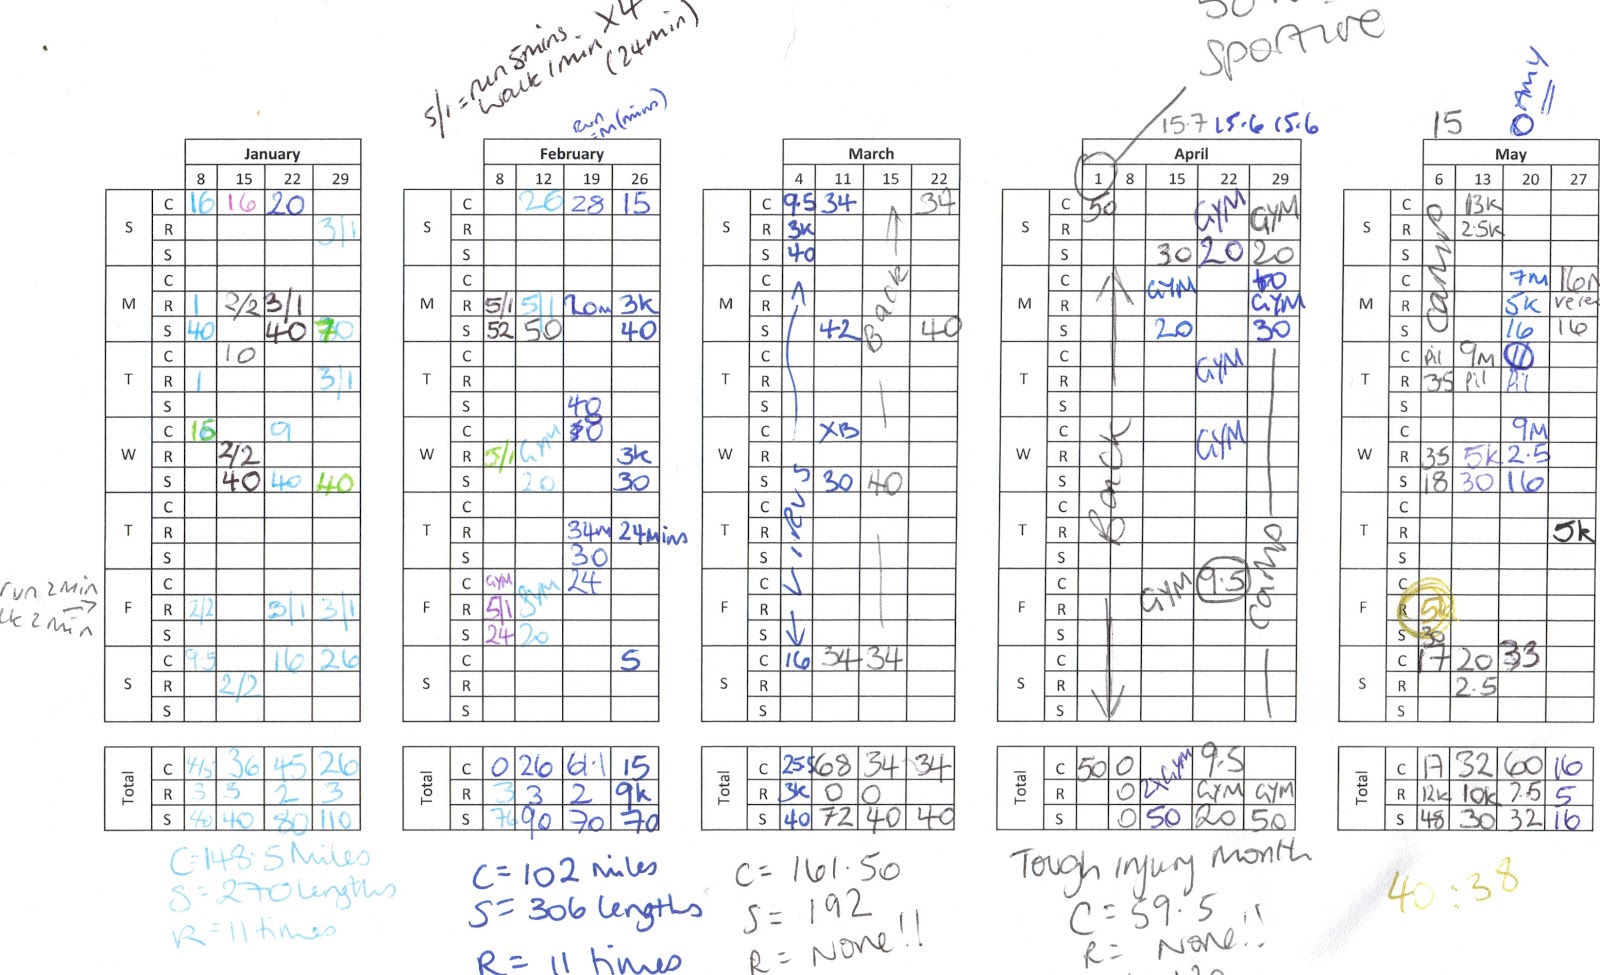 5/1 = run 5mins. X4
walk 1 min (24min)
run
=m (mins)
50
sportive
15.7 15.6 15.6
15
0 Amy
January
8 15 22 29
S C 16 16 20
R 3/1
S
M C
R 1 2/2 3/1
S 40 40 70
T C 10
R 1 3/1
S
W C 16 9
R 2/2
S 40 40 40
T C
R
S
run 2 min
2 min
F C
R 2/2 3/1 3/1
S
S C 9.5 16 26
R 2/2
S
Total C 41.5 36 45 26
R 3 3 2 3
S 40 40 80 110
C=148.5 Miles
S=270 lengths
R=11 times
February
8 12 19 26
S C 26 28 15
R
S
M C
R 5/1 5/1 20m 3k
S 52 50 40
T C
R
S 40
W C GYM
R 5/1 3k
S 20 30
T C
R 34m 24mins
S 30
F C GYM GYM 24
R 5/1
S 24 20
S C 5
R
S
Total C 0 26 61.1 15
R 3 3 2 9k
S 76 90 70 70
C= 102 miles
S= 306 lengths
R= 11 times
March
4 11 15 22
S C 9.5 34 34
R 3k
S 40
Back
M C
R
S 42 40
T C
R
S
W C XB
R
S 30 40
T C
R
S
F C
R
S
S C 16 34 34
R
S
Total C 25.5 68 34 34
R 3k 0 0
S 40 72 40 40
C= 161.50
S= 192
R= None!!
April
1 8 15 22 29
S C 50 GYM GYM
R
S 30 20 20
M C
R GYM GYM
S 20 30
T C GYM
R
S
W C GYM
R
S
Back
T C
R
S
camp
F C GYM 9.5
R
S
S C
R
S
Total C 50 0 2xGYM 9.5
R 0 GYM GYM
S 0 50 20 50
Tough injury month
C= 59.5
R= None!!
May
6 13 20 27
camp
S C 13k
R 2.5k
S
M C 7M
R 5k
S 16 16
T C Pil 9M 11
R 35 Pil Pil
S
W C 9M
R 35 5k 2.5
S 18 30 16
T C
R 5k
S
F C
R 5k
S 30
S C 17 20 33
R 2.5
S
Total C 17 32 60 16
R 12k 10k 7.5 5
S 48 30 32 16
40:38